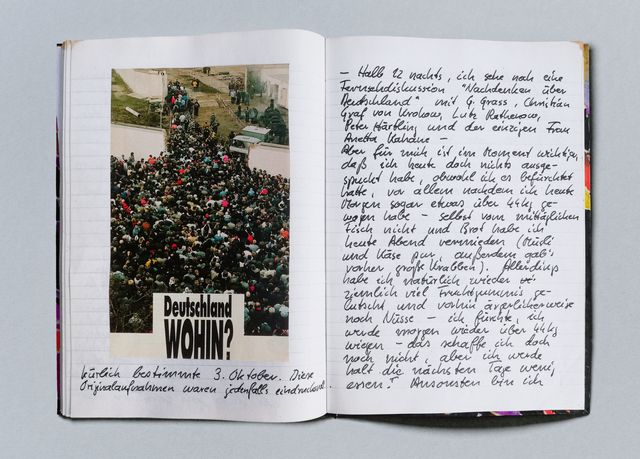 Deutschland
WOHIN?
kürlich bestimmte 3. Oktober. Diese
Originalaufnahmen waren jedenfalls eindrucksvoll.
– Halb 12 nachts, ich sehe noch eine
Fernsehdiskussion "Nachdenken über
Deutschland" mit G. Grass, Christian
Graf von Krokow, Lutz Rathenow,
Peter Härtling und der einzigen Frau
Anetta Kahane –
Aber für mich ist im Moment wichtiger,
daß ich heute doch nichts ausge-
spuckt habe, obwohl ich es befürchtet
hatte, vor allem nachdem ich heute
Morgen sogar etwas über 44 kg ge-
wogen habe – selbst vom mittäglichen
Fisch nicht und Brot habe ich
heute Abend vermieden (Müsli
und Käse pur, außerdem gab's
vorher große Krabben). Allerdings
habe ich natürlich wieder
ziemlich viel Fruchtgummis ge-
lutscht und vorhin ärgerlicherweise
noch Nüsse – ich fürchte, ich
werde morgen wieder über 44 kg
wiegen – das schaffe ich doch
noch nicht, aber ich werde
halt die nächsten Tage wenig
essen! Ansonsten bin ich